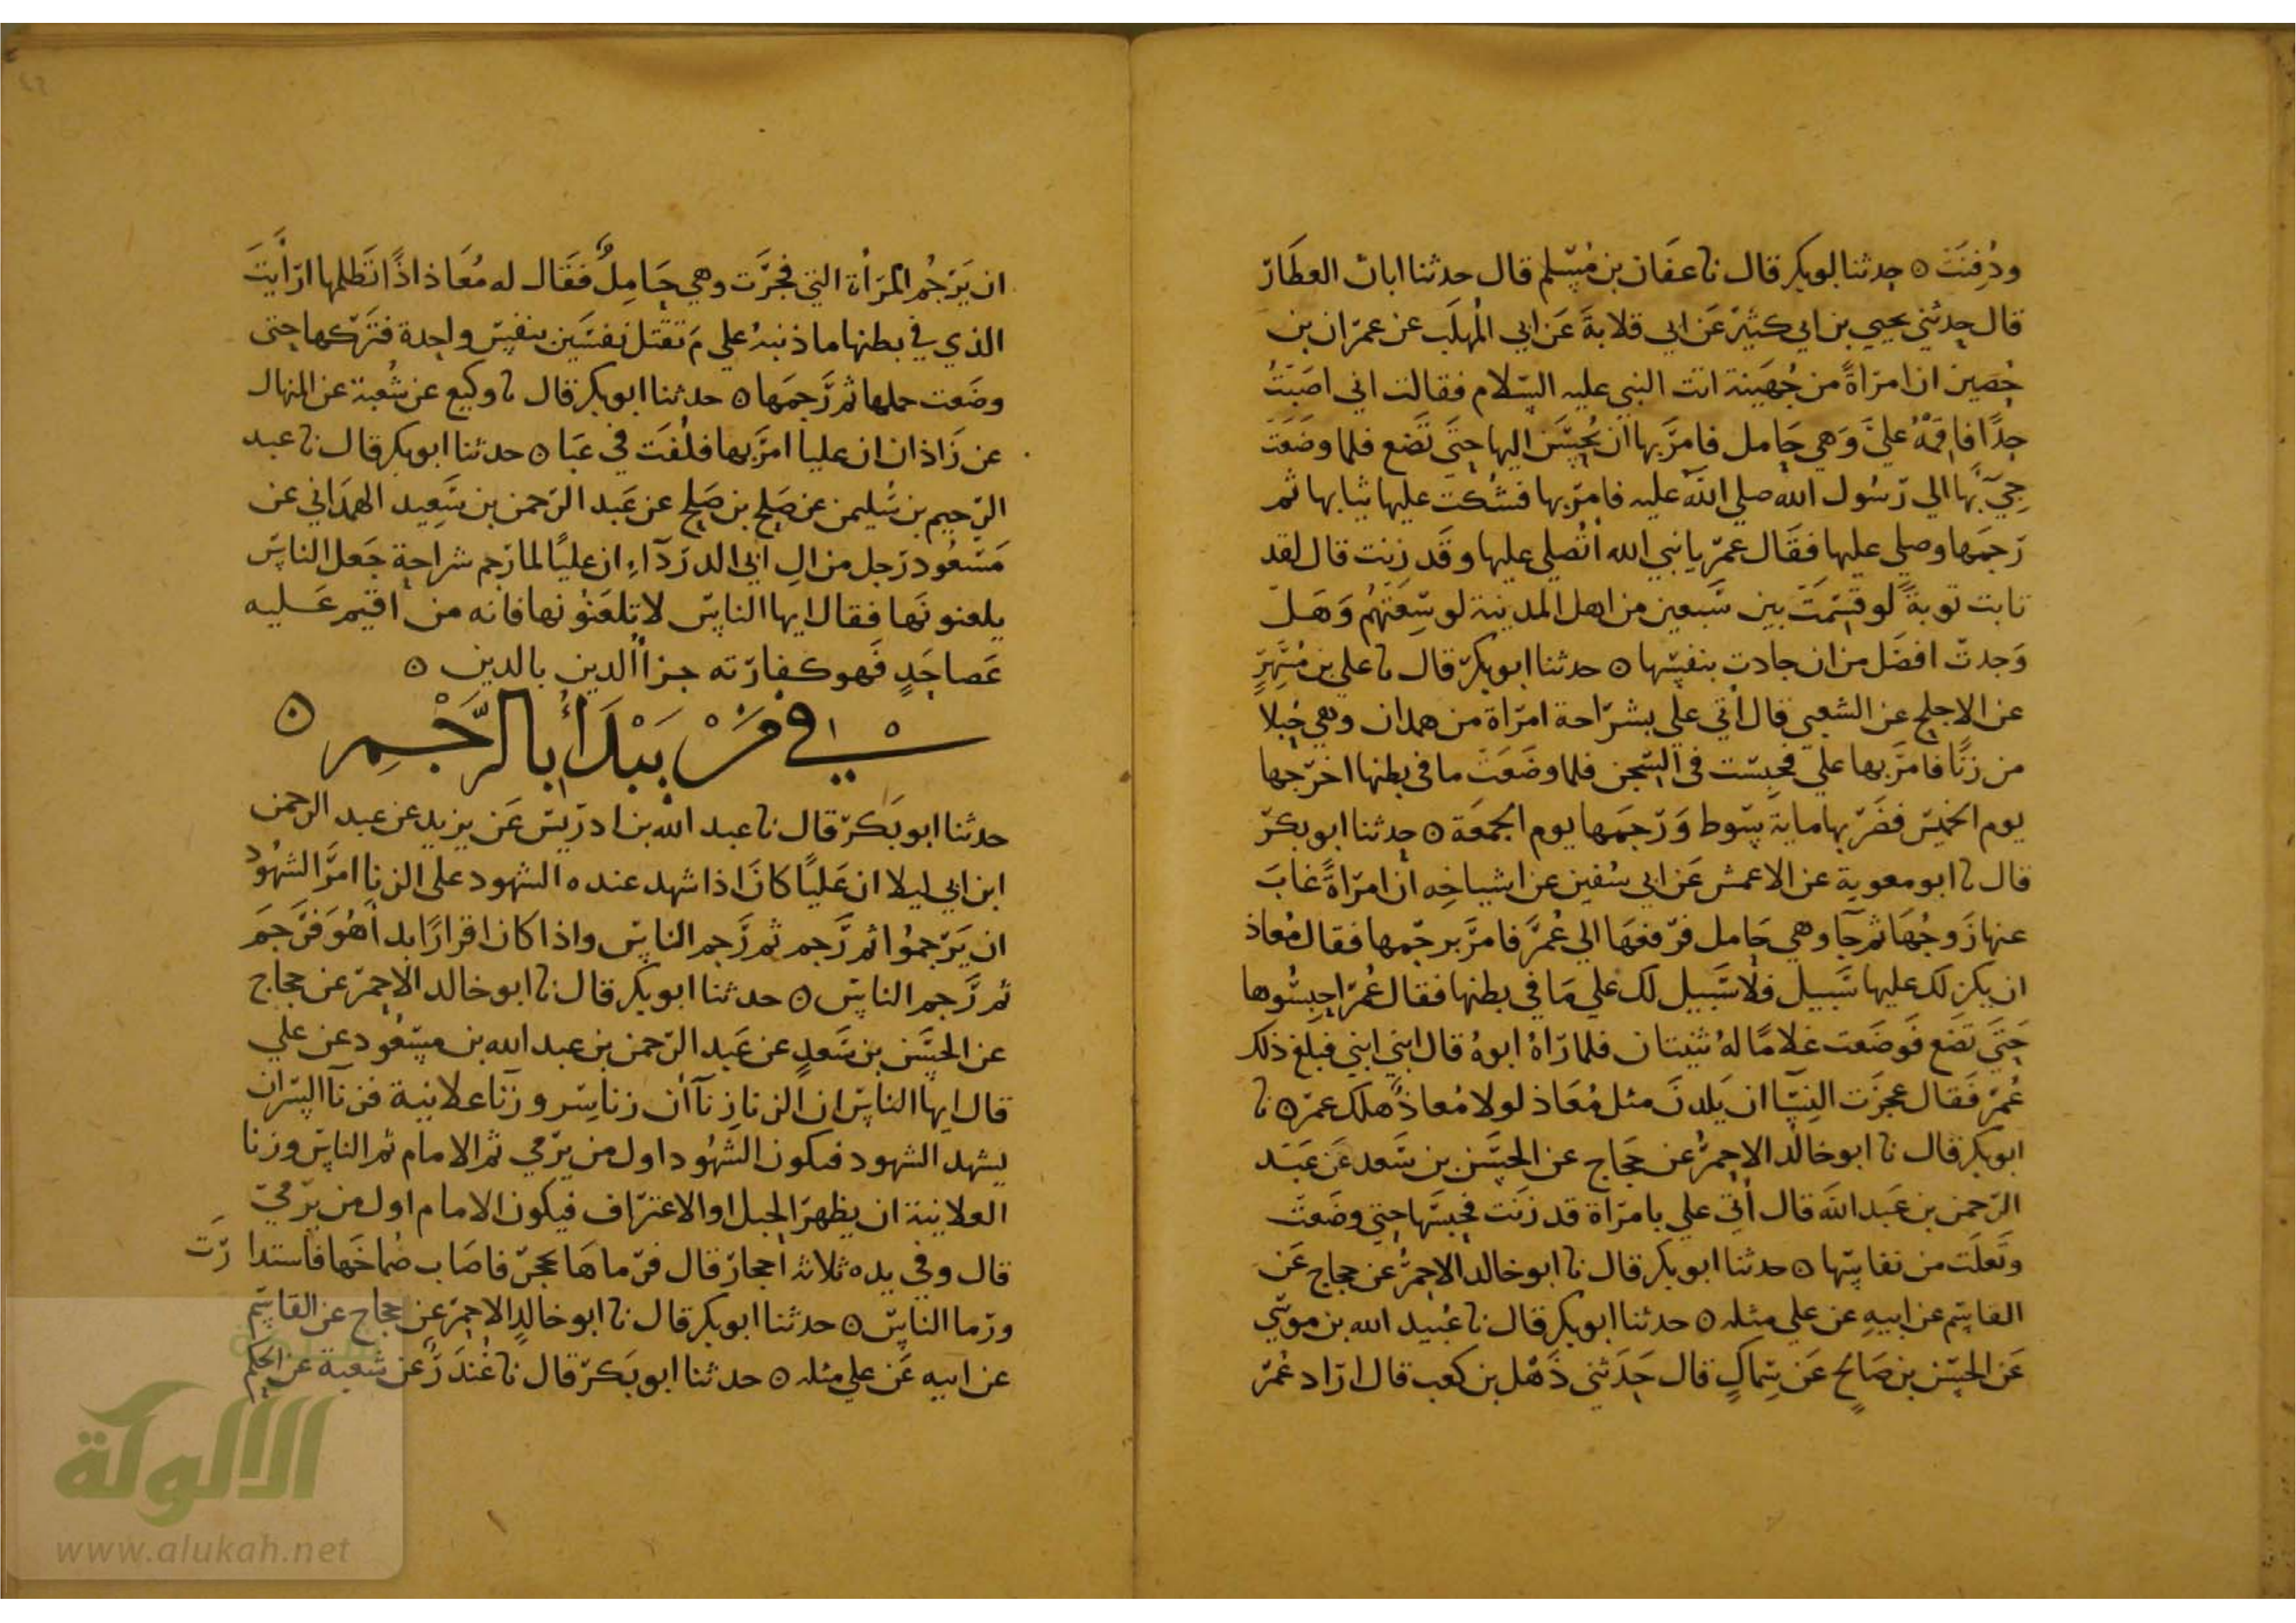 ودفنت ٥ حدثنا ابو بكر قال نا عفان بن مسلم قال حدثنا ابان العطار
قال حدثني يحيي بن ابي كثير عن ابي قلابة عن ابي المهلب عن عمران بن
حصين ان امراة من جهينة اتت النبي عليه السلام فقالت اني اصبت
حدا فاقمه علي وهي حامل فامر بها ان يحسن اليها حتي تضع فلما وضعت
جي بها الي رسول الله صلي الله عليه فامر بها فشكت عليها ثيابها ثم
رجمها وصلي عليها فقال عمر يا نبي الله اتصلي عليها وقد زنت قال لقد
تابت توبة لو قسمت بين سبعين من اهل المدينة لوسعتهم وهل
وجدت افضل من ان جادت بنفسها ٥ حدثنا ابو بكر قال نا علي بن مسهر
عن الاجلح عن الشعبي قال اتي علي بشراحة امراة من همدان وهي حبلا
من زنا فامر بها علي فحبست في السجن فلما وضعت ما في بطنها اخرجها
يوم الخميس فضربها ماية سوط ورجمها يوم الجمعة ٥ حدثنا ابو بكر
قال نا ابو معوية عن الاعمش عن ابي سفين عن اشياخه ان امراة غاب
عنها زوجها ثم جآ وهي حامل فرفعها الي عمر فامر برجمها فقال معاذ
ان يكن لك عليها سبيل فلا سبيل لك علي ما في بطنها فقال عمر احبسوها
حتي تضع فوضعت غلاما له ثنيتان فلما راه ابوه قال ابني ابني فبلغ ذلك
عمر فقال عجزت النسآ ان يلدن مثل معاذ لولا معاذ هلك عمر ٥ نا
ابو بكر قال نا ابو خالد الاحمر عن حجاج عن الحسن بن سعد عن عبد
الرحمن بن عبد الله قال اتي علي بامراة قد زنت فحبسها حتي وضعت
وتعلت من نفاسها ٥ حدثنا ابو بكر قال نا ابو خالد الاحمر عن حجاج عن
القاسم عن ابيه عن علي مثله ٥ حدثنا ابو بكر قال نا عبيد الله بن موسي
عن الحسن بن صالح عن سماك قال حدثني ذهل بن كعب قال اراد عمر
ان يرجم المرأة التي فجرت وهي حامل فقال له معاذ اذا تظلمها ارأيت
الذي في بطنها ما ذنبه علي م تقتل نفسين بنفس واحدة فتركها حتي
وضعت حملها ثم رجمها ٥ حدثنا ابو بكر قال نا وكيع عن شعبة عن المنهال
عن زاذان ان عليا امر بها فلفت في عبا ٥ حدثنا ابو بكر قال نا عبد
الرحيم بن سليمن عن صلح بن صلح عن عبد الرحمن بن سعيد الهمداني عن
مسعود رجل من ال ابي الدرداء ان عليا لما رجم شراحة جعل الناس
يلعنونها فقال ايها الناس لا تلعنونها فانه من اقيم عليه
عصا حد فهو كفارته جزاُ الدين بالدين ٥
في من يبدأ بالرجم ٥
حدثنا ابو بكر قال نا عبد الله بن ادريس عن يزيد عن عبد الرحمن
ابن ابي ليلا ان عليا كان اذا شهد عنده الشهود علي الزنا امر الشهود
ان يرجموا ثم رجم ثم رجم الناس واذا كان اقرارا بدا هو فرجم
ثم رجم الناس ٥ حدثنا ابو بكر قال نا ابو خالد الاحمر عن حجاج
عن الحسن بن سعد عن عبد الرحمن بن عبد الله بن مسعود عن علي
قال ايها الناس ان الزنا زنآان زنا سر وزنا علانية فزنآ السر ان
يشهد الشهود فيكون الشهود اول من يرمي ثم الامام ثم الناس وزنا
العلانية ان يظهر الحبل او الاعتراف فيكون الامام اول من يرمي
قال وفي يده ثلاثة احجار قال فرماها بحجر فاصاب صماخها فاستدا رت
ورما الناس ٥ حدثنا ابو بكر قال نا ابو خالد الاحمر عن حجاج عن القاسم
عن ابيه عن علي مثله ٥ حدثنا ابو بكر قال نا غندر عن شعبة عن الحكم
الألوكة
www.alukah.net